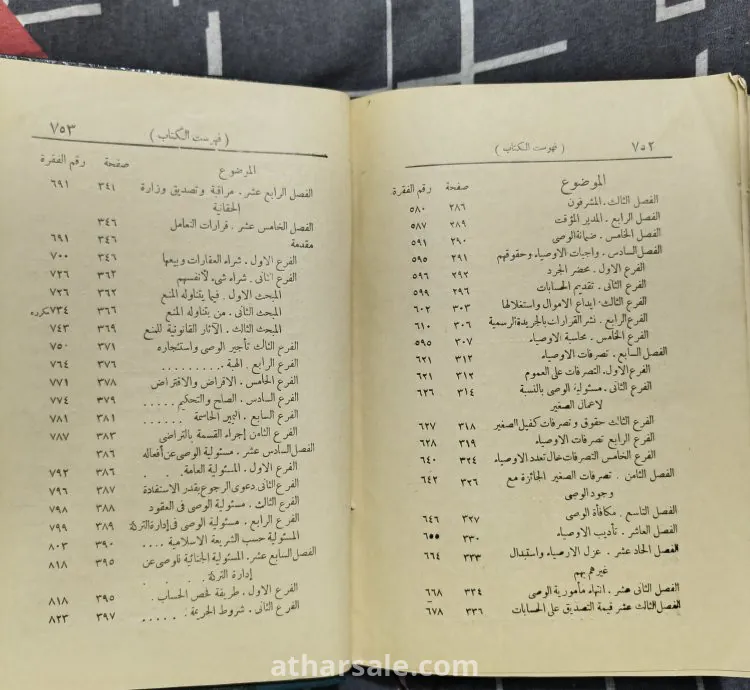 ٧٥٢
( فهرست الكتاب )
الموضوع صفحة رقم الفقرة
الفصل الثالث . المشرفون ٢٨٦ ٥٨٠
الفصل الرابع . المدير المؤقت ٢٨٩ ٥٨٧
الفصل الخامس . ضمانة الوصى ٢٩٠ ٥٩١
الفصل السادس . واجبات الاوصياء وحقوقهم ٢٩١ ٥٩٥
الفرع الاول . محضر الجرد ٢٩٢ ٥٩٦
الفرع الثانى . تقديم الحسابات ٢٩٦ ٥٩٩
الفرع الثالث . ايداع الاموال واستغلالها ٣٠٣ ٦٠٢
الفرع الرابع . نشر القرارات بالجريدة الرسمية ٣٠٦ ٦١٠
الفرع الخامس . محاسبة الاوصياء ٣٠٧ ٥٩٥
الفصل السابع . تصرفات الاوصياء ٣١٢ ٦٢١
الفرع الاول . التصرفات على العموم ٣١٢ ٦٢١
الفرع الثانى . مسئولية الوصى بالنسبة ٣١٤ ٦٢٦
لاعمال الصغير
الفرع الثالث حقوق و تصرفات كفيل الصغير ٣١٨ ٦٢٧
الفرع الرابع تصرفات الاوصياء ٣١٩ ٦٢٨
الفرع الخامس التصرفات حال تعدد الاوصياء ٣٢٤ ٦٤٠
الفصل الثامن . تصرفات الصغير الجائزة مع ٣٢٦ ٦٤٢
وجود الوصى
الفصل التاسع . مكافأة الوصى ٣٢٧ ٦٤٦
الفصل العاشر . تأديب الاوصياء ٣٣٠ ٦٥٥
الفصل الحاد عشر . عزل الاوصياء واستبدال ٣٣٣ ٦٦٤
غيرهم بهم
الفصل الثانى عشر . انتهاء مأمورية الوصى ٣٣٤ ٦٦٨
الفصل الثالث عشر قيمة التصديق على الحسابات ٣٣٦ ٦٧٨
( فهرست الكتاب )
٧٥٣
الموضوع صفحة رقم الفقرة
الفصل الرابع عشر . مراقبة وتصديق وزارة ٣٤١ ٦٩١
الحقانية
الفصل الخامس عشر . قرارات التعامل ٣٤٦
مقدمة ٣٤٦ ٦٩١
الفرع الاول . شراء العقارات وبيعها ٣٤٦ ٧٠٠
الفرع الثانى . شراء شىء لأنفسهم ٣٦٢ ٧٢٦
المبحث الاول . فيما يتناوله المنع ٣٦٢ ٧٢٦
المبحث الثانى . من يتناوله المنع ٣٦٦ ٧٣٤ مكررة
المبحث الثالث . الآثار القانونية للمنع ٣٦٩ ٧٤٣
الفرع الثالث تأجير الوصى واستئجاره ٣٧١ ٧٥٠
الفرع الرابع . الهبة . . . . . . . . ٣٧٦ ٧٦٤
الفرع الخامس . الاقراض والاقتراض ٣٧٨ ٧٧١
الفرع السادس . الصلح والتحكيم . . . . . ٣٧٩ ٧٧٤
الفرع السابع . اليمين الحاسمة . . . . . . ٣٨١ ٧٨١
الفرع الثامن إجراء القسمة بالتراضى ٣٨٣ ٧٨٧
الفصل السادس عشر . مسئولية الوصى عن أفعاله ٣٨٦
الفرع الاول . المسئولية العامة . . . . ٣٨٦ ٧٩٢
الفرع الثانى دعوى الرجوع بقدر الاستفادة ٣٨٧ ٧٩٦
الفرع الثالث . مسئولية الوصى فى العقود ٣٨٨ ٧٩٨
الفرع الرابع . مسئولية الوصى فى إدارة التركة ٣٨٩ ٧٩٩
المسئولية حسب الشريعة الاسلامية . . . . ٣٩٠ ٨٠٣
الفصل السابع عشر . المسئولية الجنائية للوصى عن ٣٩٥ ٨١٨
إدارة التركة . . . . .
الفرع الاول . طريقة فحص الحساب . . . ٣٩٥ ٨١٨
الفرع الثانى . شروط الجريمة . . . . . . ٣٩٧ ٨٢٣
atharsale.com